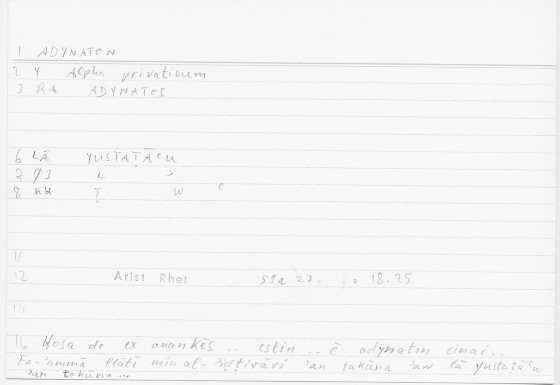 1 ADYNATON
2 Y Alpha privativum
3 RA ADYNATOS
6 LĀ YUSTAṬĀʿU
7 L
8 Ṭ W ʿ
11
12 Arist Rhet 59a 23 18.25
14
16 Hosa de ex anankēs .. estin .. ē adynaton einai ..
Fa-ʾammā min al- ʾan takūna ʾaw lā yustaṭāʿu
ʾan takūna ..